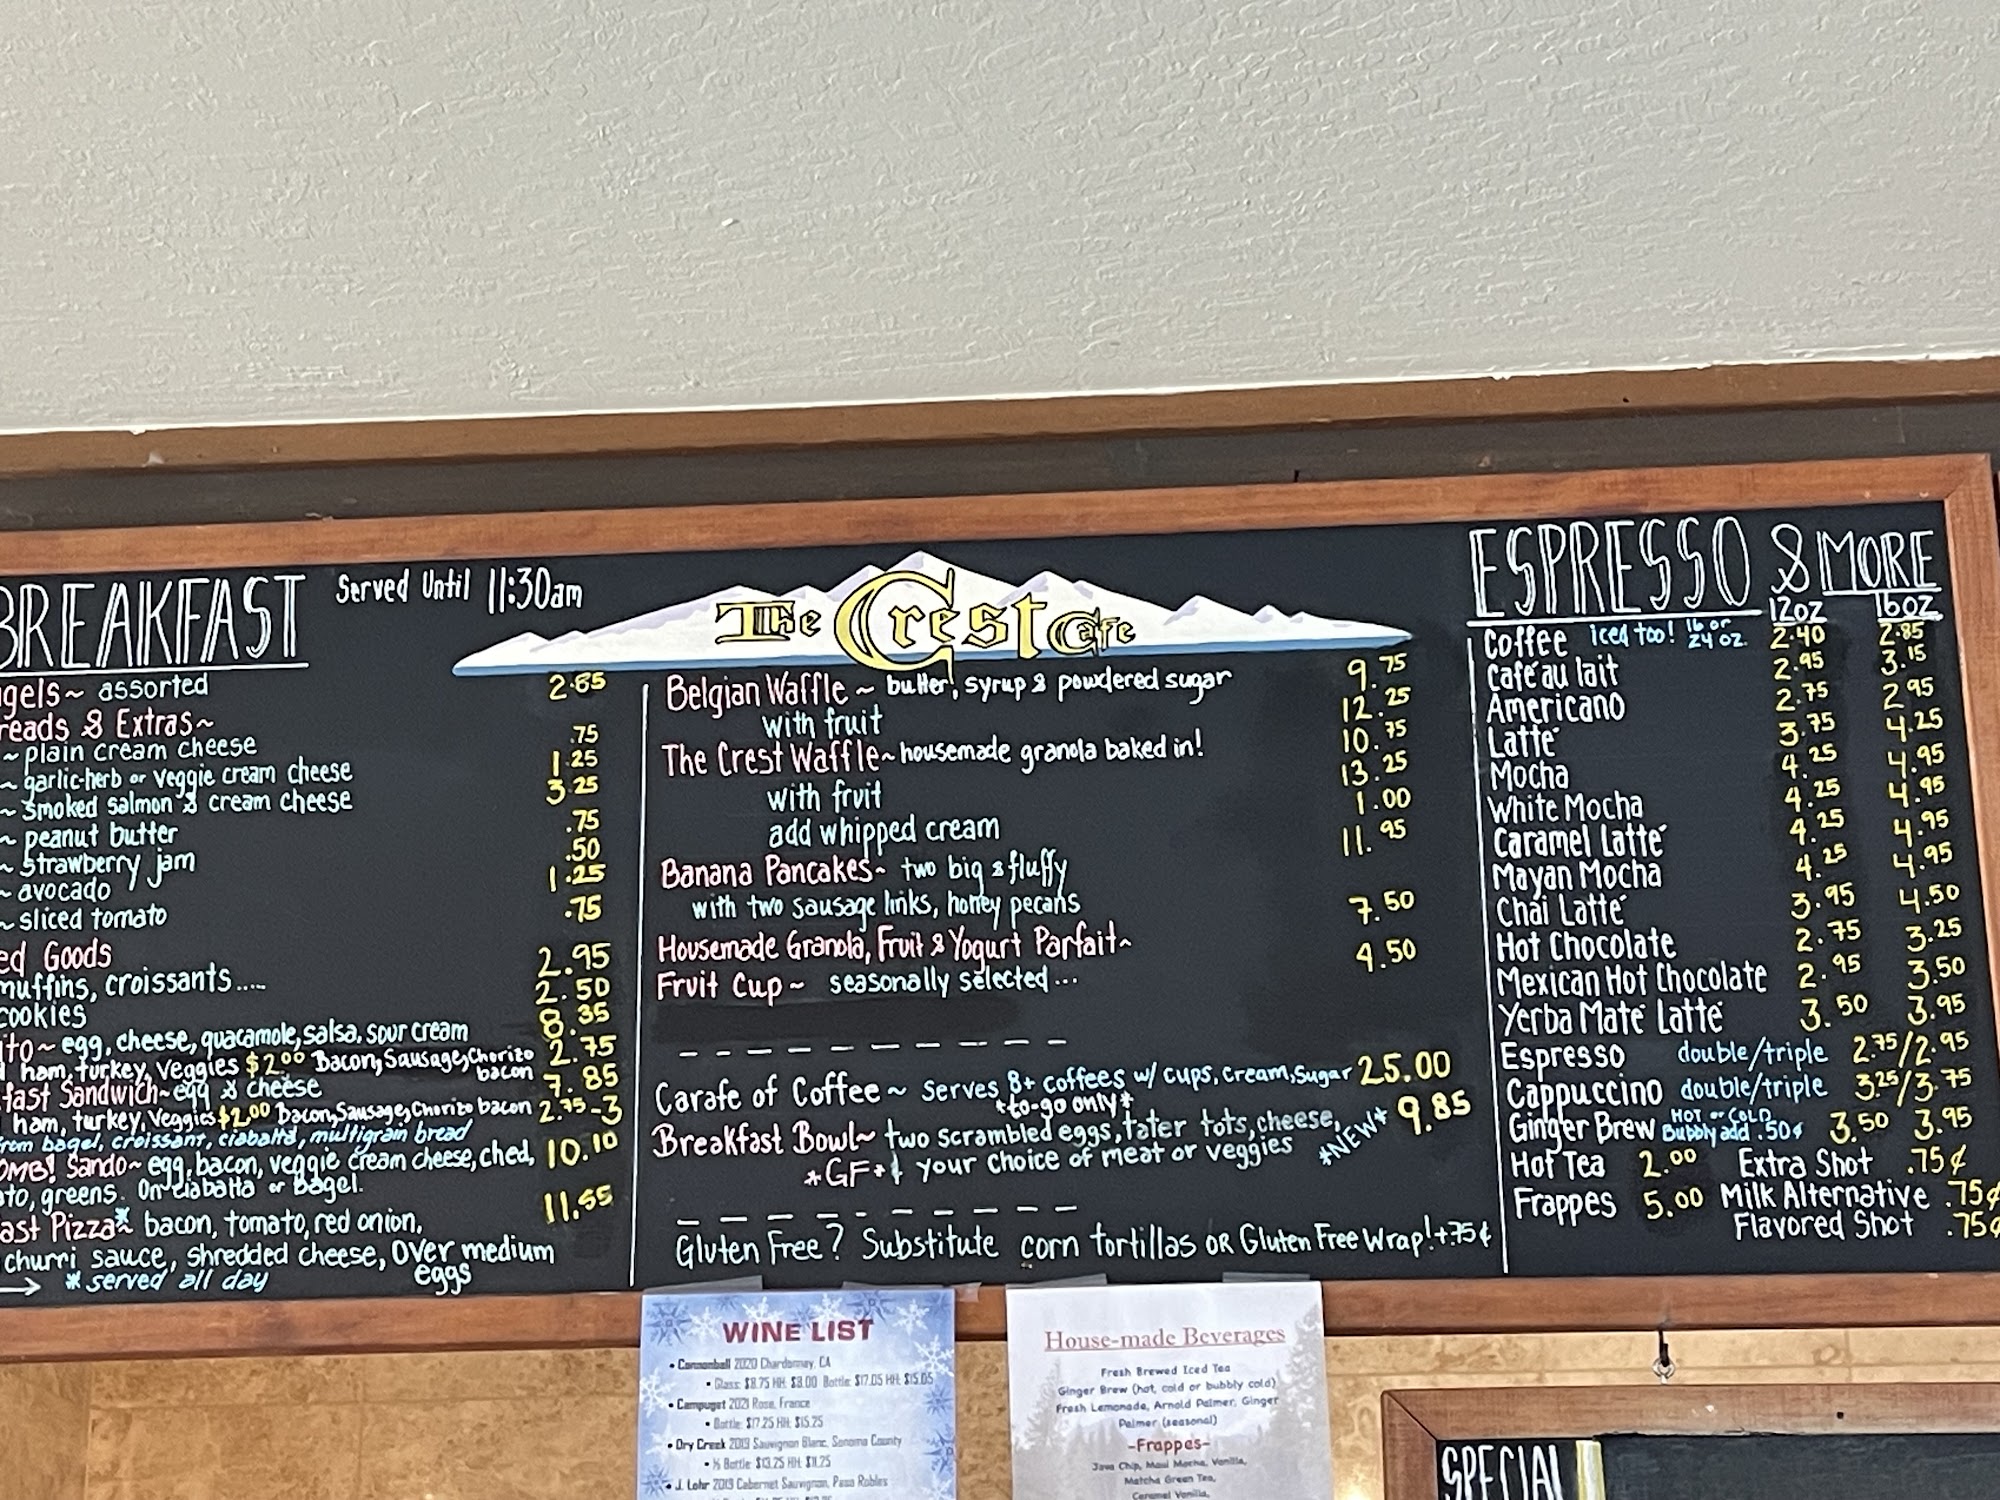 BREAKFAST Served Until 11:30am
assorted 2.85
& Extras~
~ plain cream cheese .75
~ garlic-herb or veggie cream cheese 1.25
~ smoked salmon & cream cheese 3.25
~ peanut butter .75
~ strawberry jam .50
~ avocado 1.25
~ sliced tomato .75
Goods
muffins, croissants..... 2.95
cookies 2.50
~ egg, cheese, guacamole, salsa, sour cream 8.35
ham, turkey, veggies $2.00 Bacon, Sausage, Chorizo 2.75
bacon
Sandwich~ egg & cheese 7.85
ham, turkey, veggies $2.00 Bacon, Sausage, Chorizo bacon 2.75-3
from bagel, croissant, ciabatta, multigrain bread
Sando~ egg, bacon, veggie cream cheese, ched, 10.10
greens. On ciabatta or bagel.
Pizza* bacon, tomato, red onion, 11.55
churri sauce, shredded cheese, over medium
eggs
→ *served all day
The Crest Cafe
Belgian Waffle ~ butter, syrup & powdered sugar 9.75
with fruit 12.25
The Crest Waffle~ housemade granola baked in! 10.75
with fruit 13.25
add whipped cream 1.00
Banana Pancakes~ two big & fluffy 11.95
with two sausage links, honey pecans
Housemade Granola, Fruit & Yogurt Parfait~ 7.50
Fruit Cup ~ seasonally selected... 4.50
Carafe of Coffee ~ serves 8+ coffees w/ cups, cream, sugar 25.00
*to-go only*
Breakfast Bowl~ two scrambled eggs, tater tots, cheese, *NEW* 9.85
*GF* & your choice of meat or veggies
Gluten Free? Substitute corn tortillas OR Gluten Free Wrap! +.75¢
ESPRESSO & MORE
12oz 16oz
Coffee iced too! 16 or 24 oz. 2.40 2.85
Café au lait 2.95 3.15
Americano 2.75 2.95
Latté 3.75 4.25
Mocha 4.25 4.95
White Mocha 4.25 4.95
Caramel Latté 4.25 4.95
Mayan Mocha 4.25 4.95
Chai Latté 3.95 4.50
Hot Chocolate 2.75 3.25
Mexican Hot Chocolate 2.95 3.50
Yerba Maté Latté 3.50 3.95
Espresso double/triple 2.75/2.95
Cappuccino double/triple 3.25/3.75
Ginger Brew HOT or COLD Bubbly add .50¢ 3.50 3.95
Hot Tea 2.00 Extra Shot .75¢
Frappes 5.00 Milk Alternative .75¢
Flavored Shot .75¢
WINE LIST
• Cannonball 2020 Chardonnay, CA
• Glass: $8.75 HH: $8.00 Bottle: $17.05 HH: $15.05
• Campuget 2021 Rose, France
• Bottle: $17.25 HH: $15.25
• Dry Creek 2019 Sauvignon Blanc, Sonoma County
• ½ Bottle: $13.25 HH: $11.25
• J. Lohr 2019 Cabernet Sauvignon, Paso Robles
House-made Beverages
Fresh Brewed Iced Tea
Ginger Brew (hot, cold or bubbly cold)
Fresh Lemonade, Arnold Palmer, Ginger
Palmer (seasonal)
-Frappes-
Java Chip, Maui Mocha, Vanilla,
Matcha Green Tea,
Caramel Vanilla,
SPECIAL